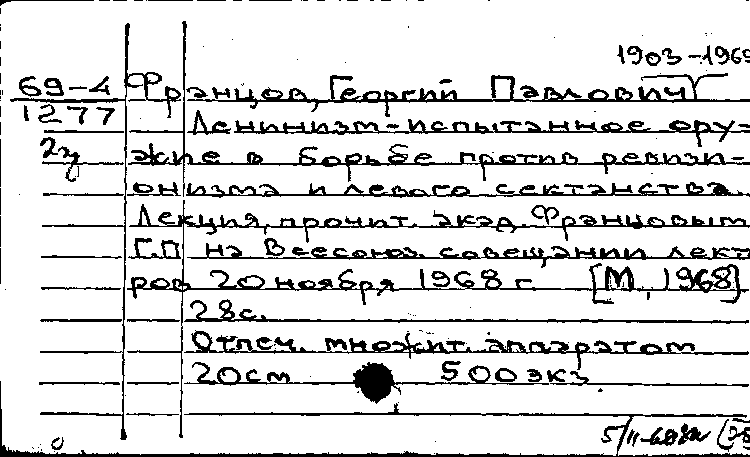 1903-1969
69-4 Францов, Георгий Павлович
1277 Ленинизм-испытанное ору-
2з жие в борьбе против ревизи-
онизма и левого сектанства.
Лекция, прочит. акад. Францовым
Г.П на Всесоюз. совещании лект
ров 20 ноября 1968 г. [М, 1968]
28с.
Отпеч. множит. аппаратом
20см 500 экз.